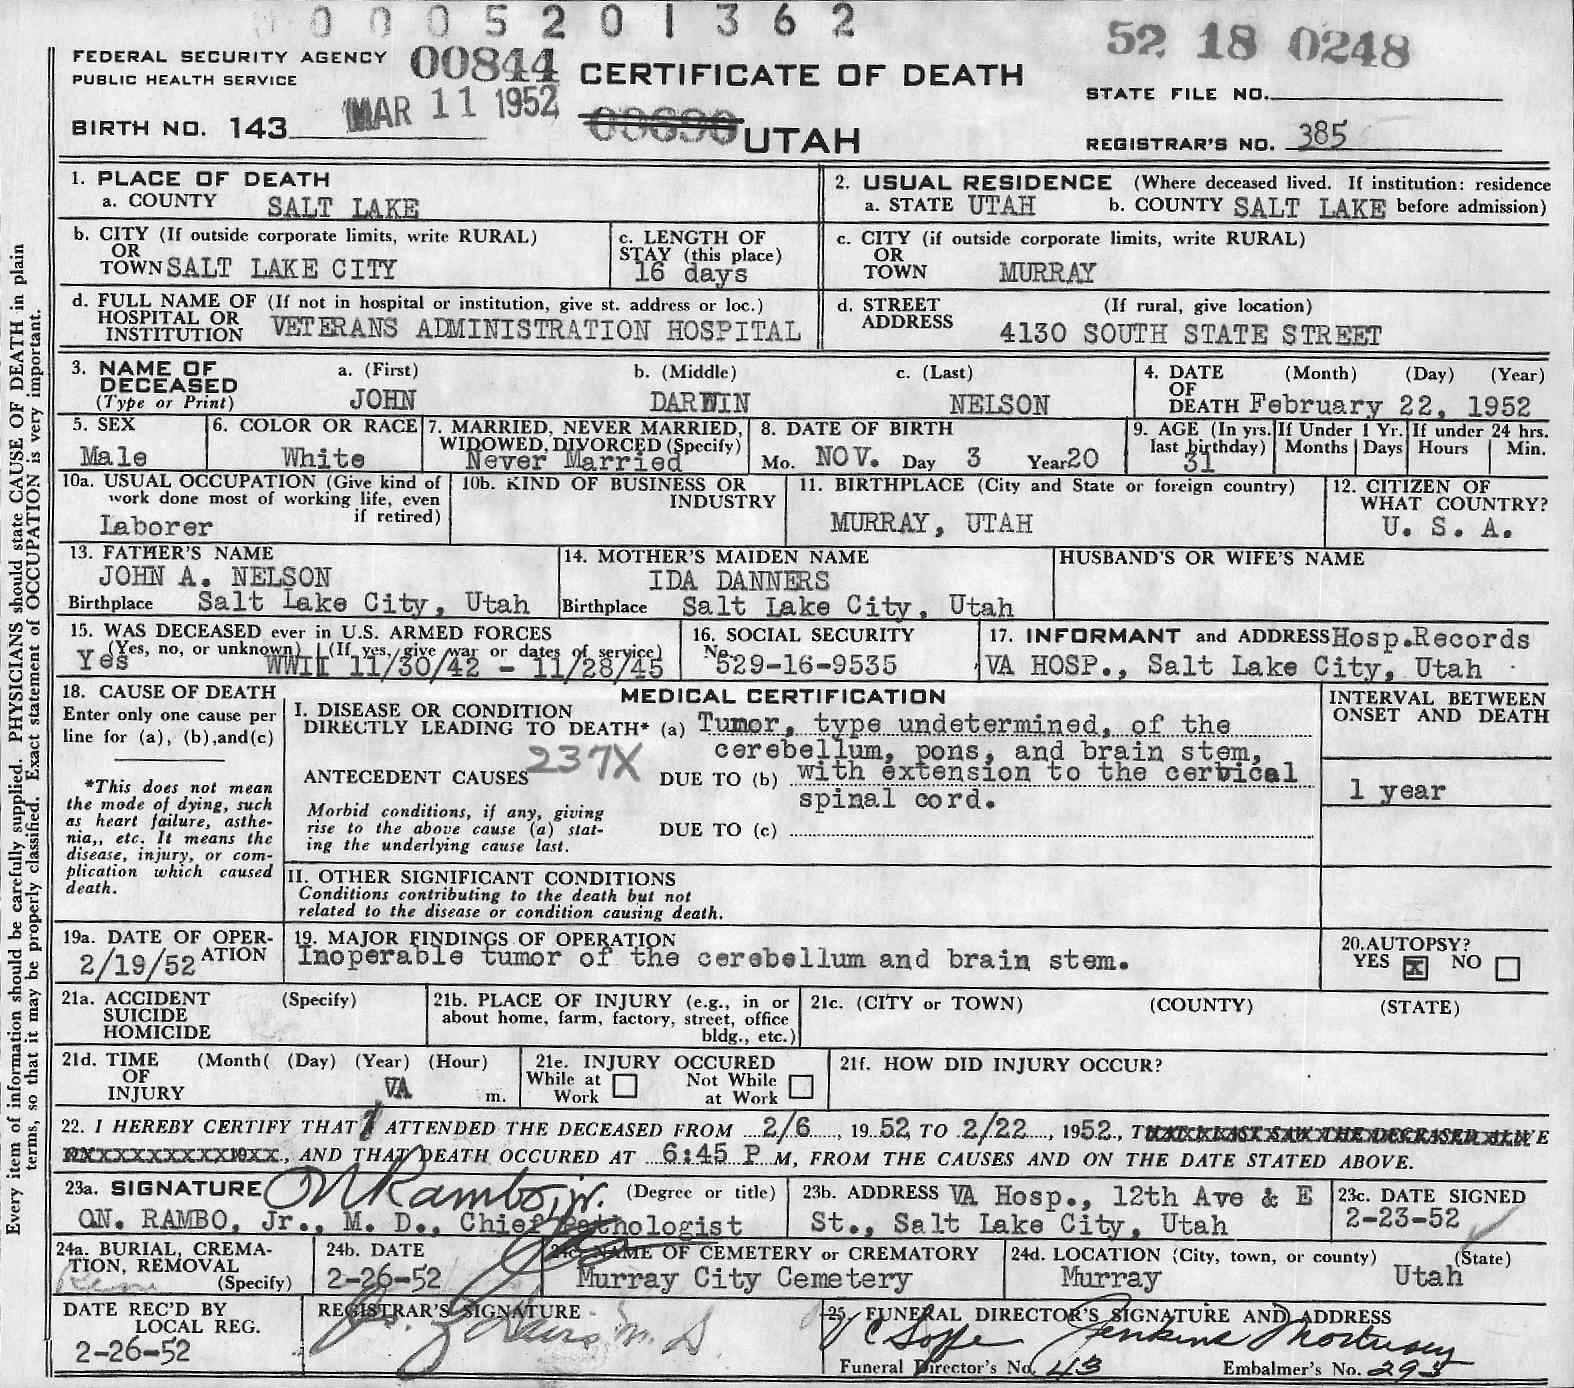 0 0 0 5 2 0 1 3 6 2
52 18 0248
FEDERAL SECURITY AGENCY 00844 CERTIFICATE OF DEATH
PUBLIC HEALTH SERVICE
STATE FILE NO.
MAR 11 1952
BIRTH NO. 143
UTAH
REGISTRAR'S NO. 385
1. PLACE OF DEATH
a. COUNTY SALT LAKE
2. USUAL RESIDENCE (Where deceased lived. If institution: residence
a. STATE UTAH b. COUNTY SALT LAKE before admission)
b. CITY (If outside corporate limits, write RURAL)
OR
TOWN SALT LAKE CITY
c. LENGTH OF
STAY (this place)
16 days
c. CITY (if outside corporate limits, write RURAL)
OR
TOWN MURRAY
d. FULL NAME OF (If not in hospital or institution, give st. address or loc.)
HOSPITAL OR
INSTITUTION VETERANS ADMINISTRATION HOSPITAL
d. STREET (If rural, give location)
ADDRESS 4130 SOUTH STATE STREET
3. NAME OF a. (First) b. (Middle) c. (Last)
DECEASED
(Type or Print) JOHN DARWIN NELSON
4. DATE (Month) (Day) (Year)
OF
DEATH February 22, 1952
5. SEX
Male
6. COLOR OR RACE
White
7. MARRIED, NEVER MARRIED,
WIDOWED, DIVORCED (Specify)
Never Married
8. DATE OF BIRTH
Mo. NOV. Day 3 Year 20
9. AGE (In yrs.
last birthday)
31
If Under 1 Yr.
Months Days
If under 24 hrs.
Hours Min.
10a. USUAL OCCUPATION (Give kind of
work done most of working life, even
if retired)
Laborer
10b. KIND OF BUSINESS OR
INDUSTRY
11. BIRTHPLACE (City and State or foreign country)
MURRAY, UTAH
12. CITIZEN OF
WHAT COUNTRY?
U. S. A.
13. FATHER'S NAME
JOHN A. NELSON
Birthplace Salt Lake City, Utah
14. MOTHER'S MAIDEN NAME
IDA DANNERS
Birthplace Salt Lake City, Utah
HUSBAND'S OR WIFE'S NAME
15. WAS DECEASED ever in U.S. ARMED FORCES
(Yes, no, or unknown) (If yes, give war or dates of service)
Yes WWII 11/30/42 - 11/28/45
16. SOCIAL SECURITY
No. 529-16-9535
17. INFORMANT and ADDRESS Hosp.Records
VA HOSP., Salt Lake City, Utah
18. CAUSE OF DEATH
Enter only one cause per
line for (a), (b),and(c)
*This does not mean
the mode of dying, such
as heart failure, asthe-
nia,, etc. It means the
disease, injury, or com-
plication which caused
death.
MEDICAL CERTIFICATION
I. DISEASE OR CONDITION
DIRECTLY LEADING TO DEATH* (a) Tumor, type undetermined, of the
cerebellum, pons, and brain stem,
237X
ANTECEDENT CAUSES DUE TO (b) with extension to the cervical
spinal cord.
Morbid conditions, if any, giving
rise to the above cause (a) stat-
ing the underlying cause last.
DUE TO (c)
INTERVAL BETWEEN
ONSET AND DEATH
1 year
II. OTHER SIGNIFICANT CONDITIONS
Conditions contributing to the death but not
related to the disease or condition causing death.
19a. DATE OF OPER-
ATION
2/19/52
19. MAJOR FINDINGS OF OPERATION
Inoperable tumor of the cerebellum and brain stem.
20.AUTOPSY?
YES X NO
21a. ACCIDENT (Specify)
SUICIDE
HOMICIDE
21b. PLACE OF INJURY (e.g., in or
about home, farm, factory, street, office
bldg., etc.)
21c. (CITY or TOWN) (COUNTY) (STATE)
21d. TIME (Month( (Day) (Year) (Hour)
OF
INJURY m.
VA
21e. INJURY OCCURED
While at Work Not While at Work
21f. HOW DID INJURY OCCUR?
22. I HEREBY CERTIFY THAT ATTENDED THE DECEASED FROM 2/6, 1952 TO 2/22, 1952, THAT I LAST SAW THE DECEASED ALIVE
, AND THAT DEATH OCCURED AT 6:45 P M, FROM THE CAUSES AND ON THE DATE STATED ABOVE.
23a. SIGNATURE ON Rambo, jr. (Degree or title)
ON. RAMBO, Jr., M. D., Chief Pathologist
23b. ADDRESS VA Hosp., 12th Ave & E
St., Salt Lake City, Utah
23c. DATE SIGNED
2-23-52
24a. BURIAL, CREMA-
TION, REMOVAL
(Specify)
24b. DATE
2-26-52
24c. NAME OF CEMETERY or CREMATORY
Murray City Cemetery
24d. LOCATION (City, town, or county) (State)
Murray Utah
DATE REC'D BY
LOCAL REG.
2-26-52
REGISTRAR'S SIGNATURE
M. D.
25. FUNERAL DIRECTOR'S SIGNATURE AND ADDRESS
Jenkins Mortuary
Funeral Director's No. 43 Embalmer's No. 295
Every item of information should be carefully supplied. PHYSICIANS should state CAUSE OF DEATH in plain
terms, so that it may be properly classified. Exact statement of OCCUPATION is very important.